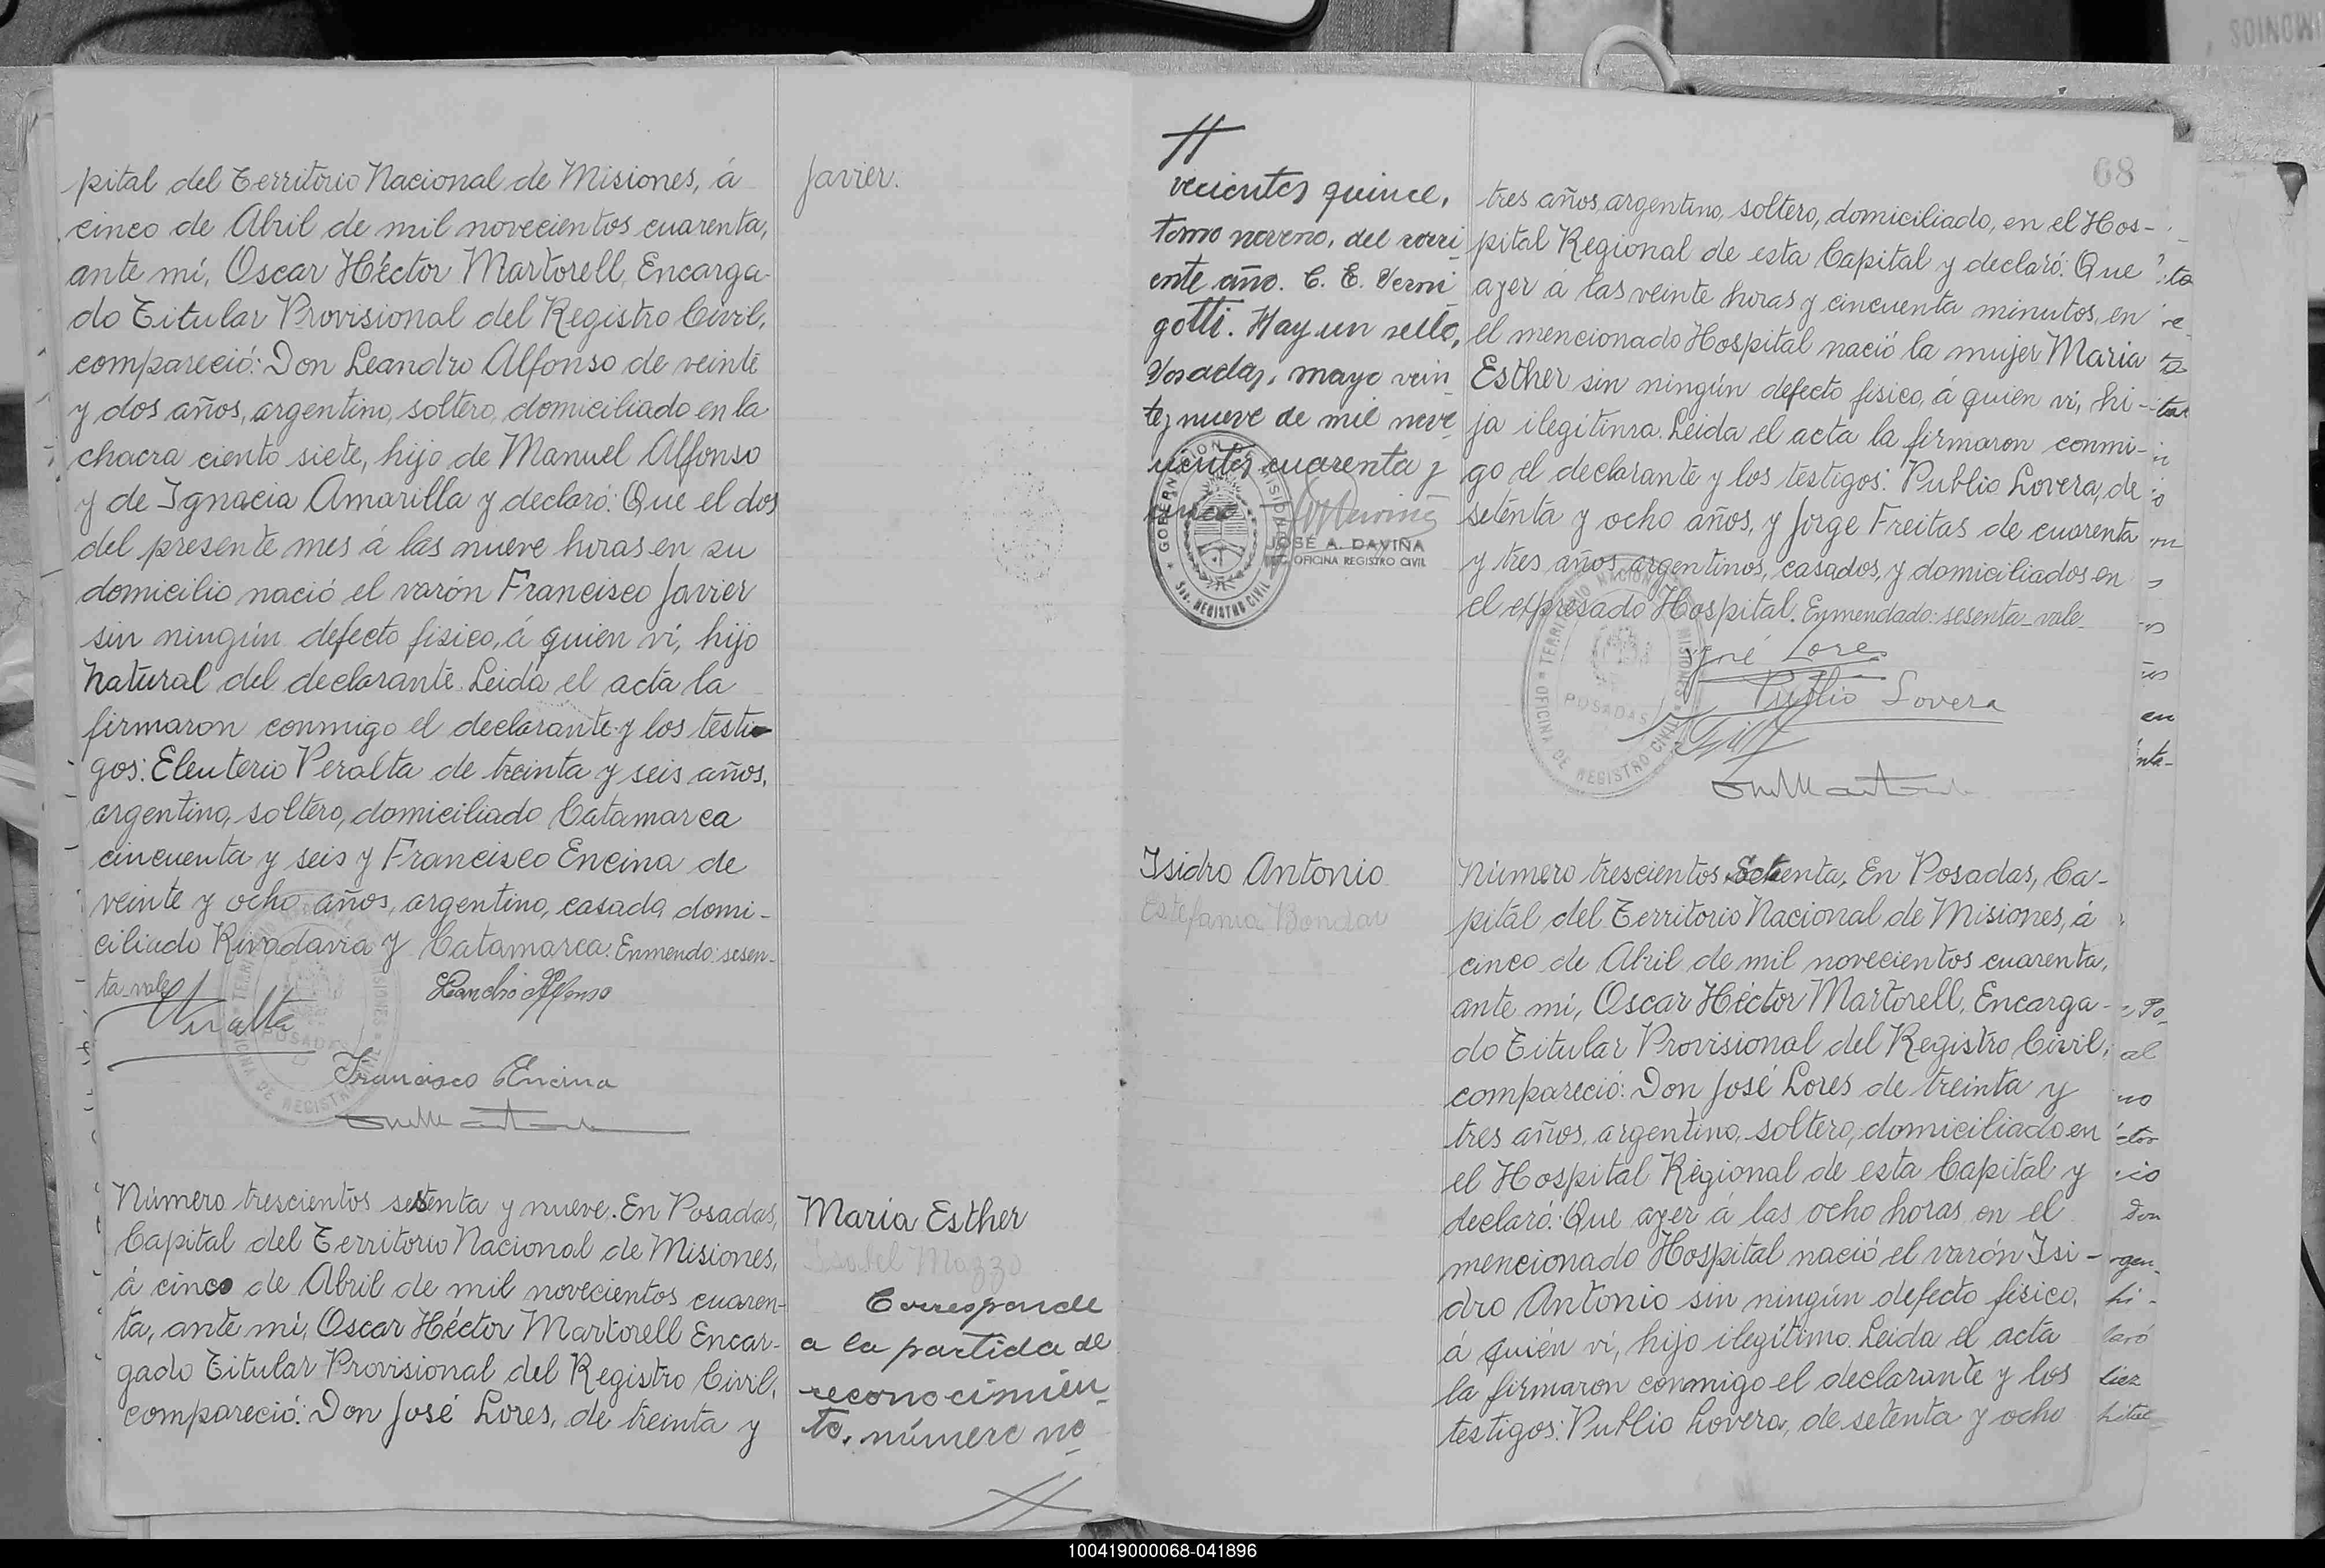 pital del Territorio Nacional de Misiones, á
cinco de Abril de mil novecientos cuarenta,
ante mí, Oscar Héctor Martorell, Encarga-
do Titular Provisional del Registro Civil,
compareció: Don Leandro Alfonso de veinte
y dos años, argentino, soltero, domiciliado en la
chacra ciento siete, hijo de Manuel Alfonso
y de Ignacia Amarilla y declaró: Que el dos
del presente mes á las nueve horas en su
domicilio nació el varón Francisco Javier
sin ningún defecto fisico, á quien ví, hijo
natural del declarante. Leida el acta la
firmaron conmigo el declarante y los testi-
gos: Eleuterio Peralta de treinta y seis años,
argentino, soltero, domiciliado Catamarca
cincuenta y seis y Francisco Encina de
veinte y ocho años, argentino, casado, domi-
ciliado Rivadavia y Catamarca. Enmendo: sesen-
ta_vale
Leandro Alfonso
Peralta
Francisco Encina
Número trescientos sesenta y nueve. En Posadas,
Capital del Territorio Nacional de Misiones,
á cinco de Abril de mil novecientos cuaren-
ta, ante mí, Oscar Héctor Martorell Encar-
gado Titular Provisional del Registro Civil,
compareció: Don José Lores, de treinta y
Javier.
Maria Esther
Isabel Mazzo
Corresponde
a la partida de
reconocimien
to, número no
veicientos quince,
tomo noveno, del corri
ente año. C. E. Verni
gotti. Hay un sello,
Posadas, mayo vein
te y nueve de mil nove
cientos cuarenta y
cinco
GOBERNACION DE MISIONES
Sec. REGISTRO CIVIL
JOSE A. DAVIÑA
OFICINA REGISTRO CIVIL
68
tres años, argentino, soltero, domiciliado, en el Hos-
pital Regional de esta Capital y declaró: Que
ayer á las veinte horas y cincuenta minutos, en
el mencionado Hospital nació la mujer Maria
Esther sin ningún defecto fisico, á quien ví, hi-
ja ilegitima. Leida el acta la firmaron conmi-
go el declarante y los testigos: Publio Lovera, de
setenta y ocho años, y Jorge Freitas de cuarenta
y tres años, argentinos, casados, y domiciliados en
el expresado Hospital. Enmendado: sesenta_vale_
José Lores
Publio Lovera
TERRITORIO NACIONAL MISIONES
POSADAS
OFICINA DE REGISTRO CIVIL
Isidro Antonio
Estefania Bondar
Número trescientos Setenta, En Posadas, Ca-
pital del Territorio Nacional de Misiones, á
cinco de Abril de mil novecientos cuarenta,
ante mí, Oscar Héctor Martorell, Encarga-
do Titular Provisional del Registro Civil,
compareció: Don José Lores de treinta y
tres años, argentino, soltero, domiciliado en
el Hospital Regional de esta Capital y
declaró: Que ayer á las ocho horas, en el
mencionado Hospital nació el varón Isi-
dro Antonio sin ningún defecto fisico,
á quién ví, hijo ilegítimo. Leida el acta
la firmaron conmigo el declarante y los
testigos: Publio Lovera, de setenta y ocho
100419000068-041896